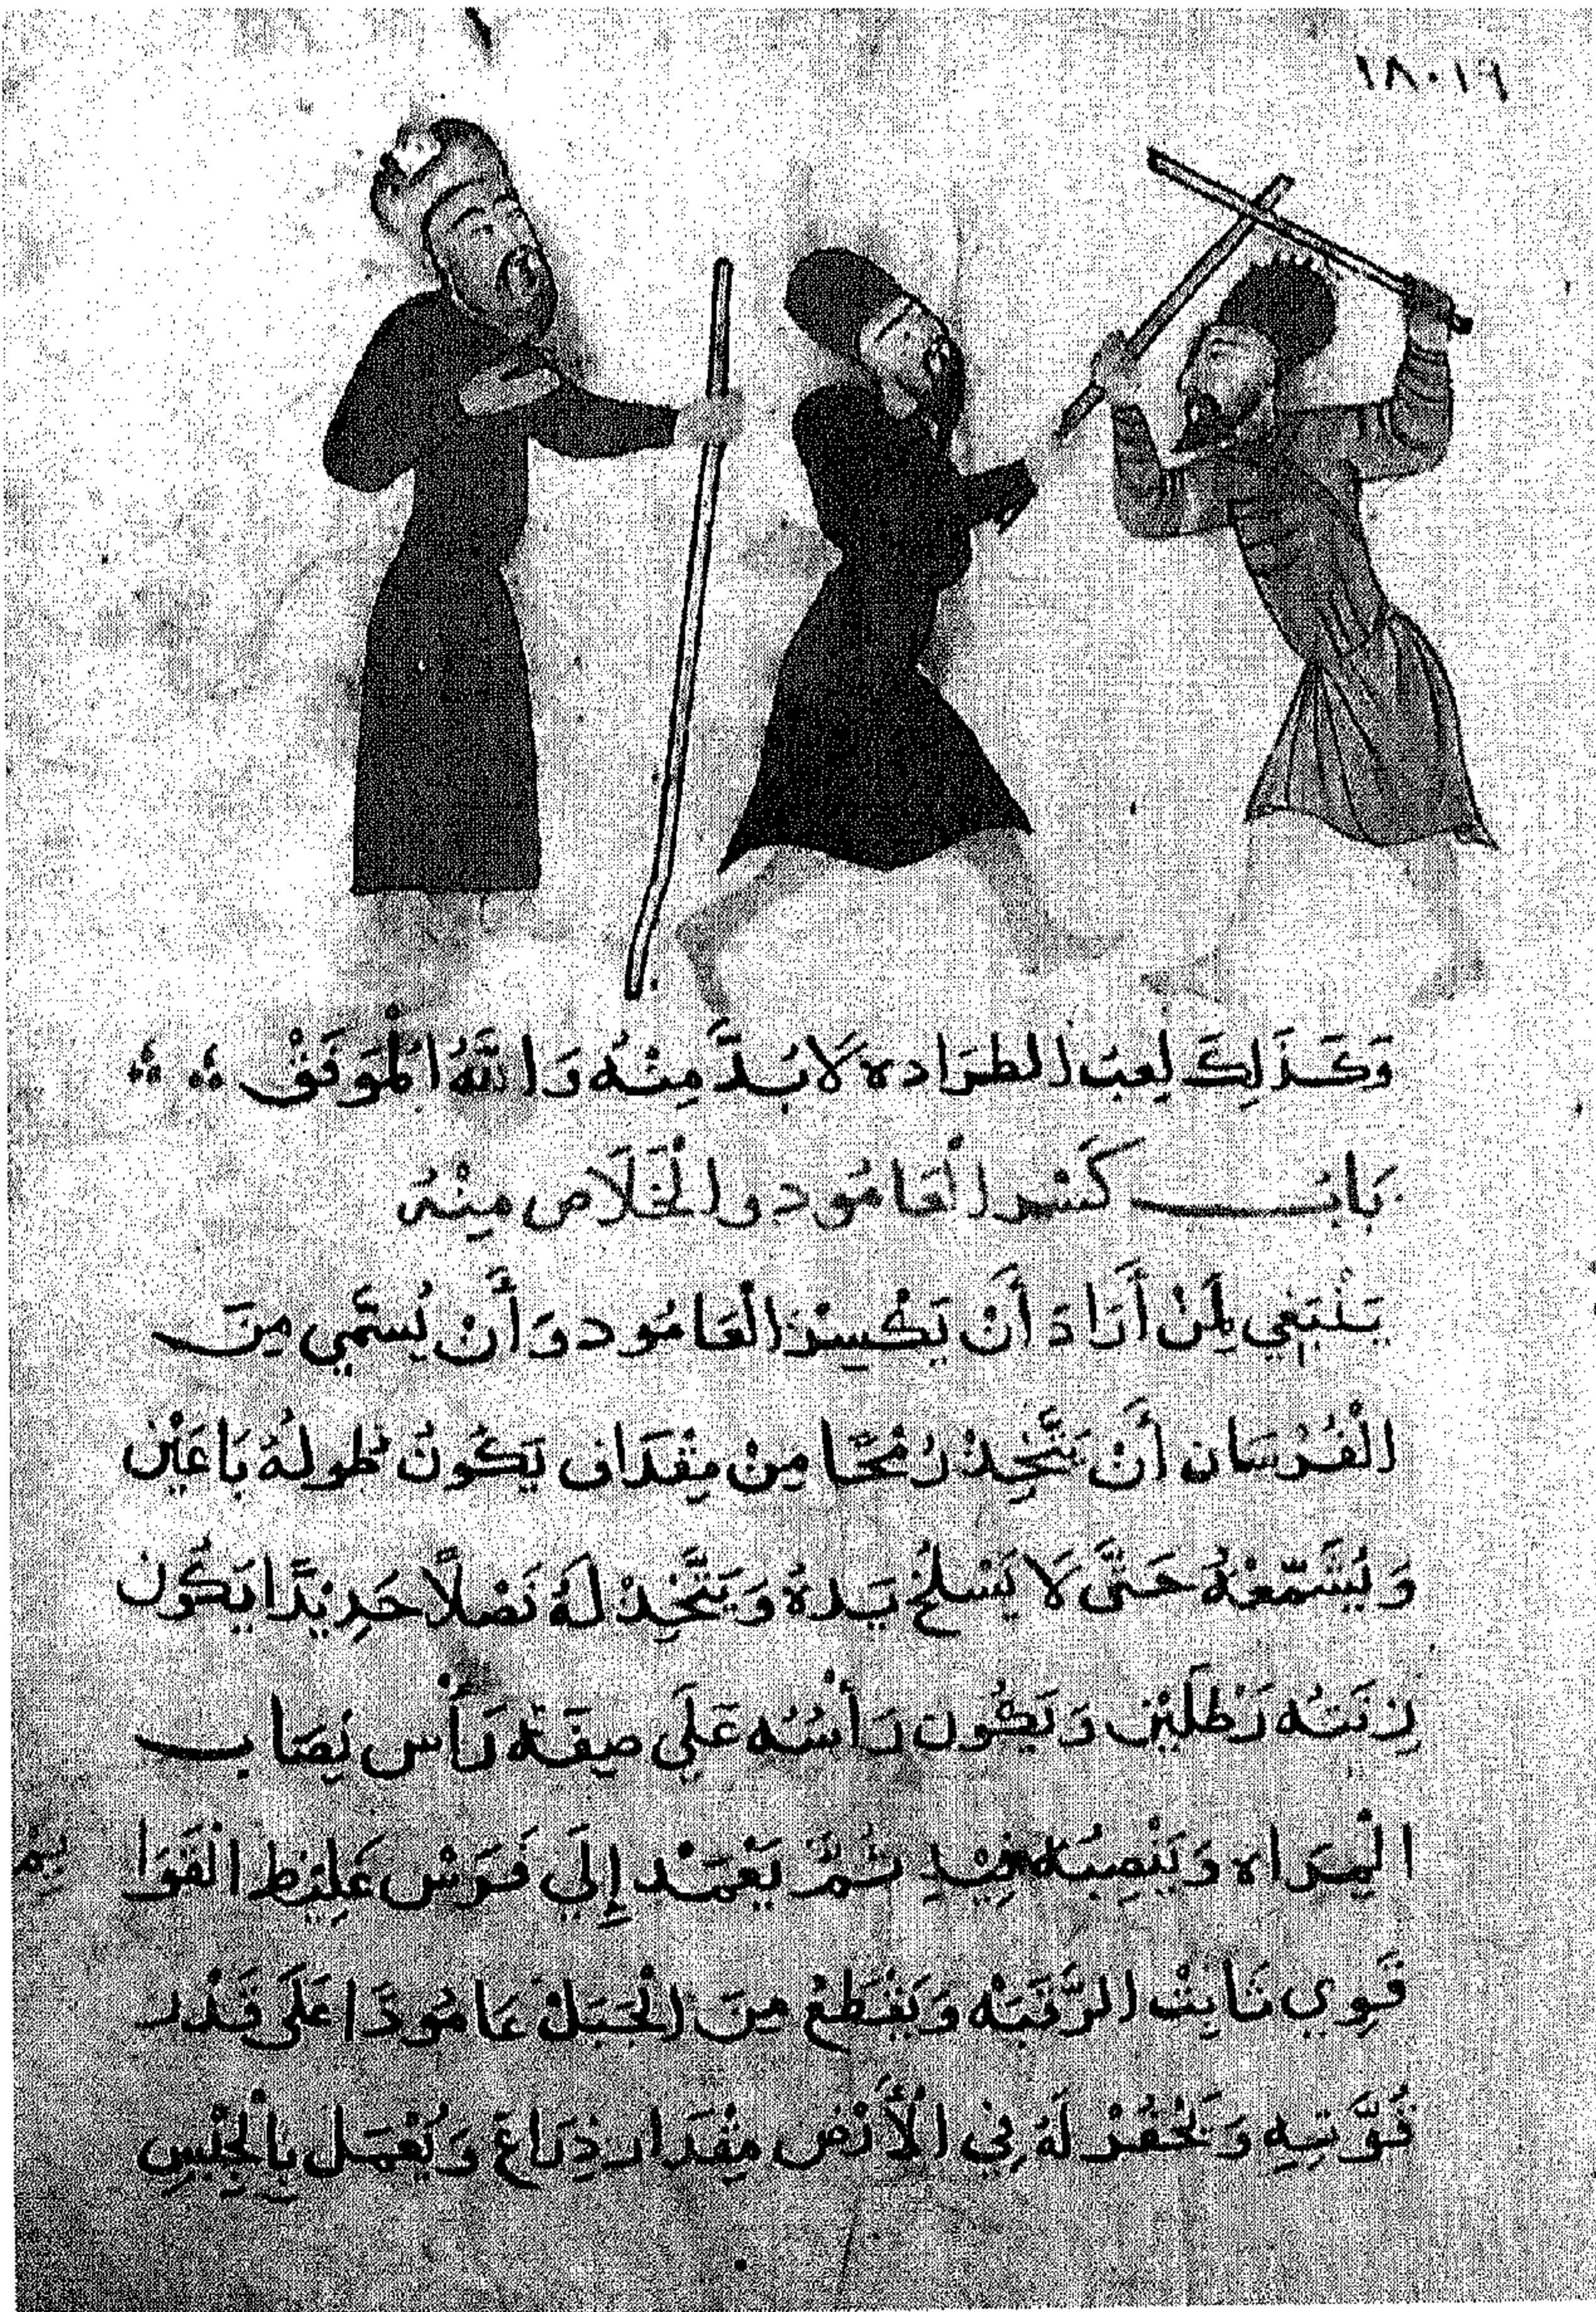 ١٨٠١٦
وَكَذَلِكَ لِعبُ الطرَاده لَابُدَّ مِنْهُ وَاللَّهُ الْمُوَفَقْ
بَابُ كَسْرِ الْعَامُودِ والْخَلَاصِ مِنْهُ
يَنْبَغِي لِمَنْ أَرَادَ أَنْ يَكْسِرَ الْعَامُود وَأَنْ يُسَمَّي مِنَ
الْفُرْسَان أَنْ يَتَّخِذْ رُمْحًا مِنْ مِقْدَار يَكُونُ طُولهُ بَاعَيْن
وَيُشَمِّعْهُ حَتَّى لَا يَسْلخ يَدهُ وَيَتَّخِذْ لَهُ نَصْلًا حَدِيْدًا يَكُون
زِنَتهُ رَطْلَيْن وَيَكُون رَأْسُه عَلَي صِفَة رَأْس نِصَاب
الْمِرَاه وَيَنْصِبُه فِيْهِ ثُمَّ يَعْمَد إِلَي فَرَسْ غَلِيْظ الْقَوَا
يِمْ
قَوِي ثَابِتْ الرَّقَبَه وَيَقْطَعْ مِنَ الْجَبَلْ عَامُودًا عَلَى قَدْر
قُوَّتِهِ وَيَحْفُرْ لَهُ فِي الْأَرْض مِقْدَار ذِرَاعْ وَيُعْمَل بِالْجِبْسِ